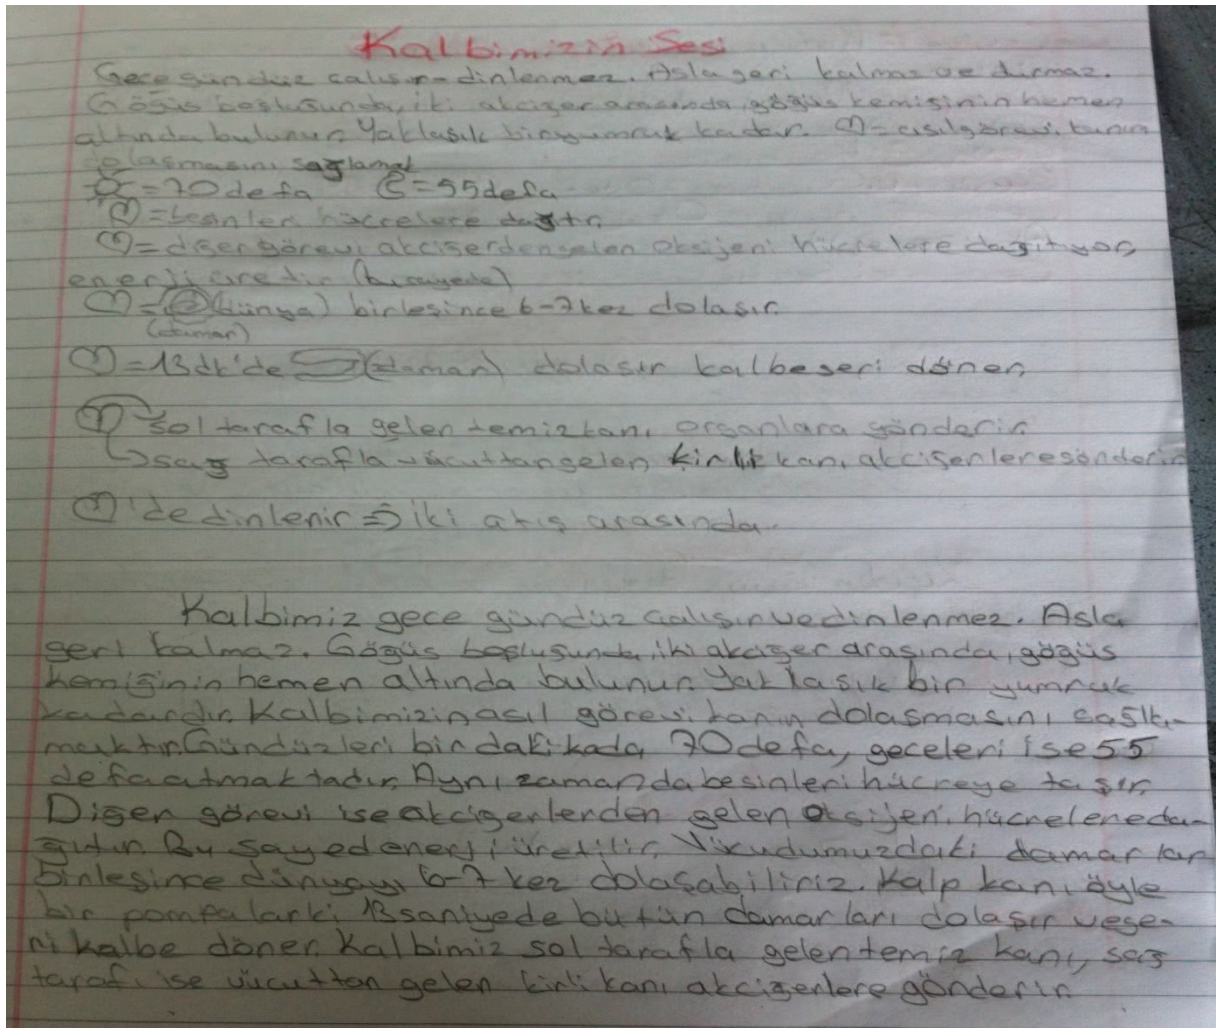 Kalbimizin Sesi
Gece gündüz calışır dinlenmez. Asla geri kalmaz ve durmaz.
Göğüs boşluğunda, iki akciğer arasında, göğüs kemiğinin hemen
altında bulunur. Yaklaşık bir yumruk kadar. = asıl görevi, kanın
dolaşmasını sağlamak
= 70 defa = 55 defa
= besinleri hücrelere dağıtır.
= diğer görevi akciğerden gelen oksijeni hücrelere dağıtıyor,
enerji üretir (bu sayede)
= (dünya) birleşince 6-7 kez dolaşır.
(damar)
= 13 dk'de (damar) dolaşır kalbe geri döner.
sol tarafla gelen temiz kanı organlara gönderir.
→ sağ tarafla vücuttan gelen kirli kanı akciğerlere gönderir.
'de dinlenir ⇒ iki atış arasında.
Kalbimiz gece gündüz calışır ve dinlenmez. Asla
geri kalmaz. Göğüs boşluğunda, iki akciğer arasında, göğüs
kemiğinin hemen altında bulunur. Yaklaşık bir yumruk
kadardır. Kalbimizin asıl görevi kanın dolaşmasını sağla-
maktır. Gündüzleri bir dakikada 70 defa, geceleri ise 55
defa atmaktadır. Aynı zamanda besinleri hücreye taşır.
Diğer görevi ise akciğerlerden gelen oksijeni hücrelere da-
ğıtır. Bu sayede enerji üretilir. Vücudumuzdaki damarlar
birleşince dünyayı 6-7 kez dolaşabiliriz. Kalp kanı öyle
bir pompalar ki 13 saniyede bütün damarları dolaşır ve ge-
ri kalbe döner. Kalbimiz sol tarafla gelen temiz kanı, sağ
tarafı ise vücuttan gelen kirli kanı akciğerlere gönderir.